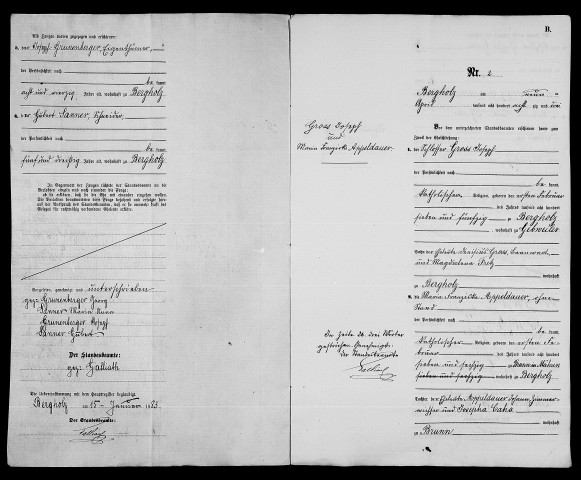 Als Zeugen waren zugezogen und erschienen:
3. der Joseph Grunenberger, Eigenthümer,
der Persönlichkeit nach
be kannt,
acht und vierzig Jahre alt, wohnhaft zu Bergholz
4. der Hubert Sanner, Schneider,
der Persönlichkeit nach
be kannt,
fünf und dreißig Jahre alt, wohnhaft zu Bergholz
In Gegenwart der Zeugen richtete der Standesbeamte an die Verlobten einzeln und nach einander die Frage:
ob sie erklären, daß sie die Ehe mit einander eingehen wollen.
Die Verlobten beantworteten diese Frage bejahend und erfolgte hierauf der Ausspruch des Standesbeamten, daß er sie nunmehr kraft des Gesetzes für rechtmäßig verbundene Eheleute erkläre.
Vorgelesen, genehmigt und unterschrieben
gez: Grunenberger Georg
Sanner Maria Anna
Grunenberger Joseph
Sanner Hubert
Der Standesbeamte:
gez: Galliath
Die Uebereinstimmung mit dem Hauptregister beglaubigt
Bergholz am 15 ten Januar 1883
Der Standesbeamte:
Gross Joseph
und
Maria Franziska Appeldauer
Die Zeile
gestrichen Genehmigt:
der Standesbeamte
B.
Nr. 2
Bergholz am neun ten
April tausend acht hundert acht zig und drei
Vor dem unterzeichneten Standesbeamten erschienen heute zum Zweck der Eheschließung:
1. der Schlosser Gross Joseph
der Persönlichkeit nach
be kannt,
katholischer Religion, geboren den ersten Februar
des Jahres tausend acht hundert
sieben und fünfzig zu Bergholz
, wohnhaft zu Gebweiler
Sohn der Eheleute Dionisius Gross,
und Magdalena
wohnhaft
zu Bergholz
2. die Maria Franziska Appeldauer, ohne
Stand
der Persönlichkeit nach
be kannt,
katholischer Religion, geboren den ersten
des Jahres tausend acht hundert
sieben und sechzig zu Brunn in Mähren
wohnhaft zu Bergholz
Tochter der Eheleute Appeldauer Johann,
und Josepha
wohnhaft
zu Brunn